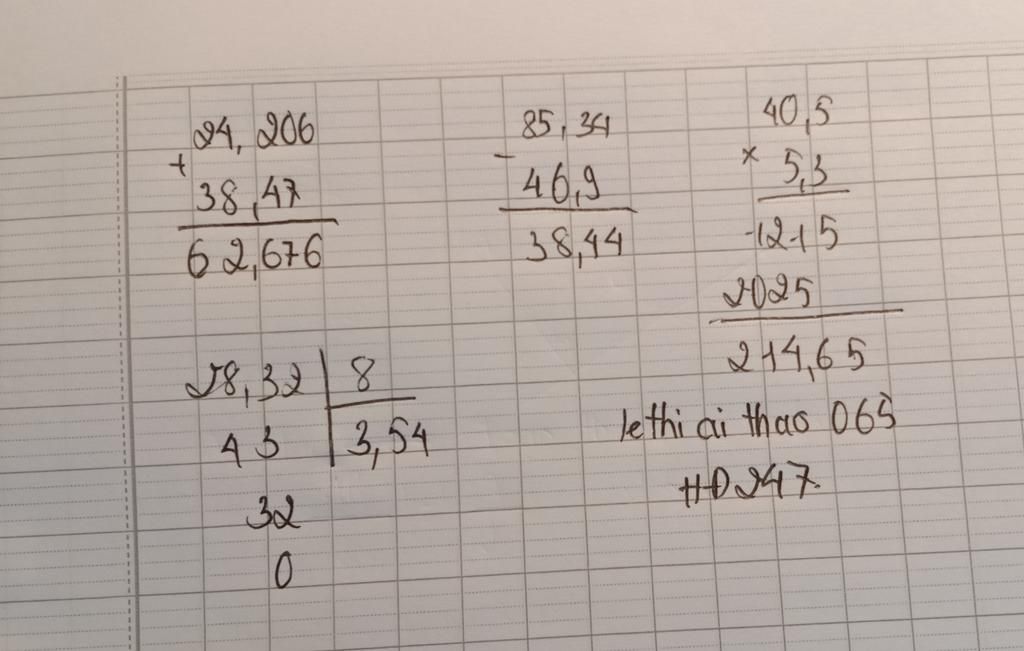 24,206
+
38,47
62,676
85,34
-
46,9
38,44
40,5
x 5,3
1215
2025
214,65
28,32 8
43 3,54
32
0
le thi ai thao 065
HD247